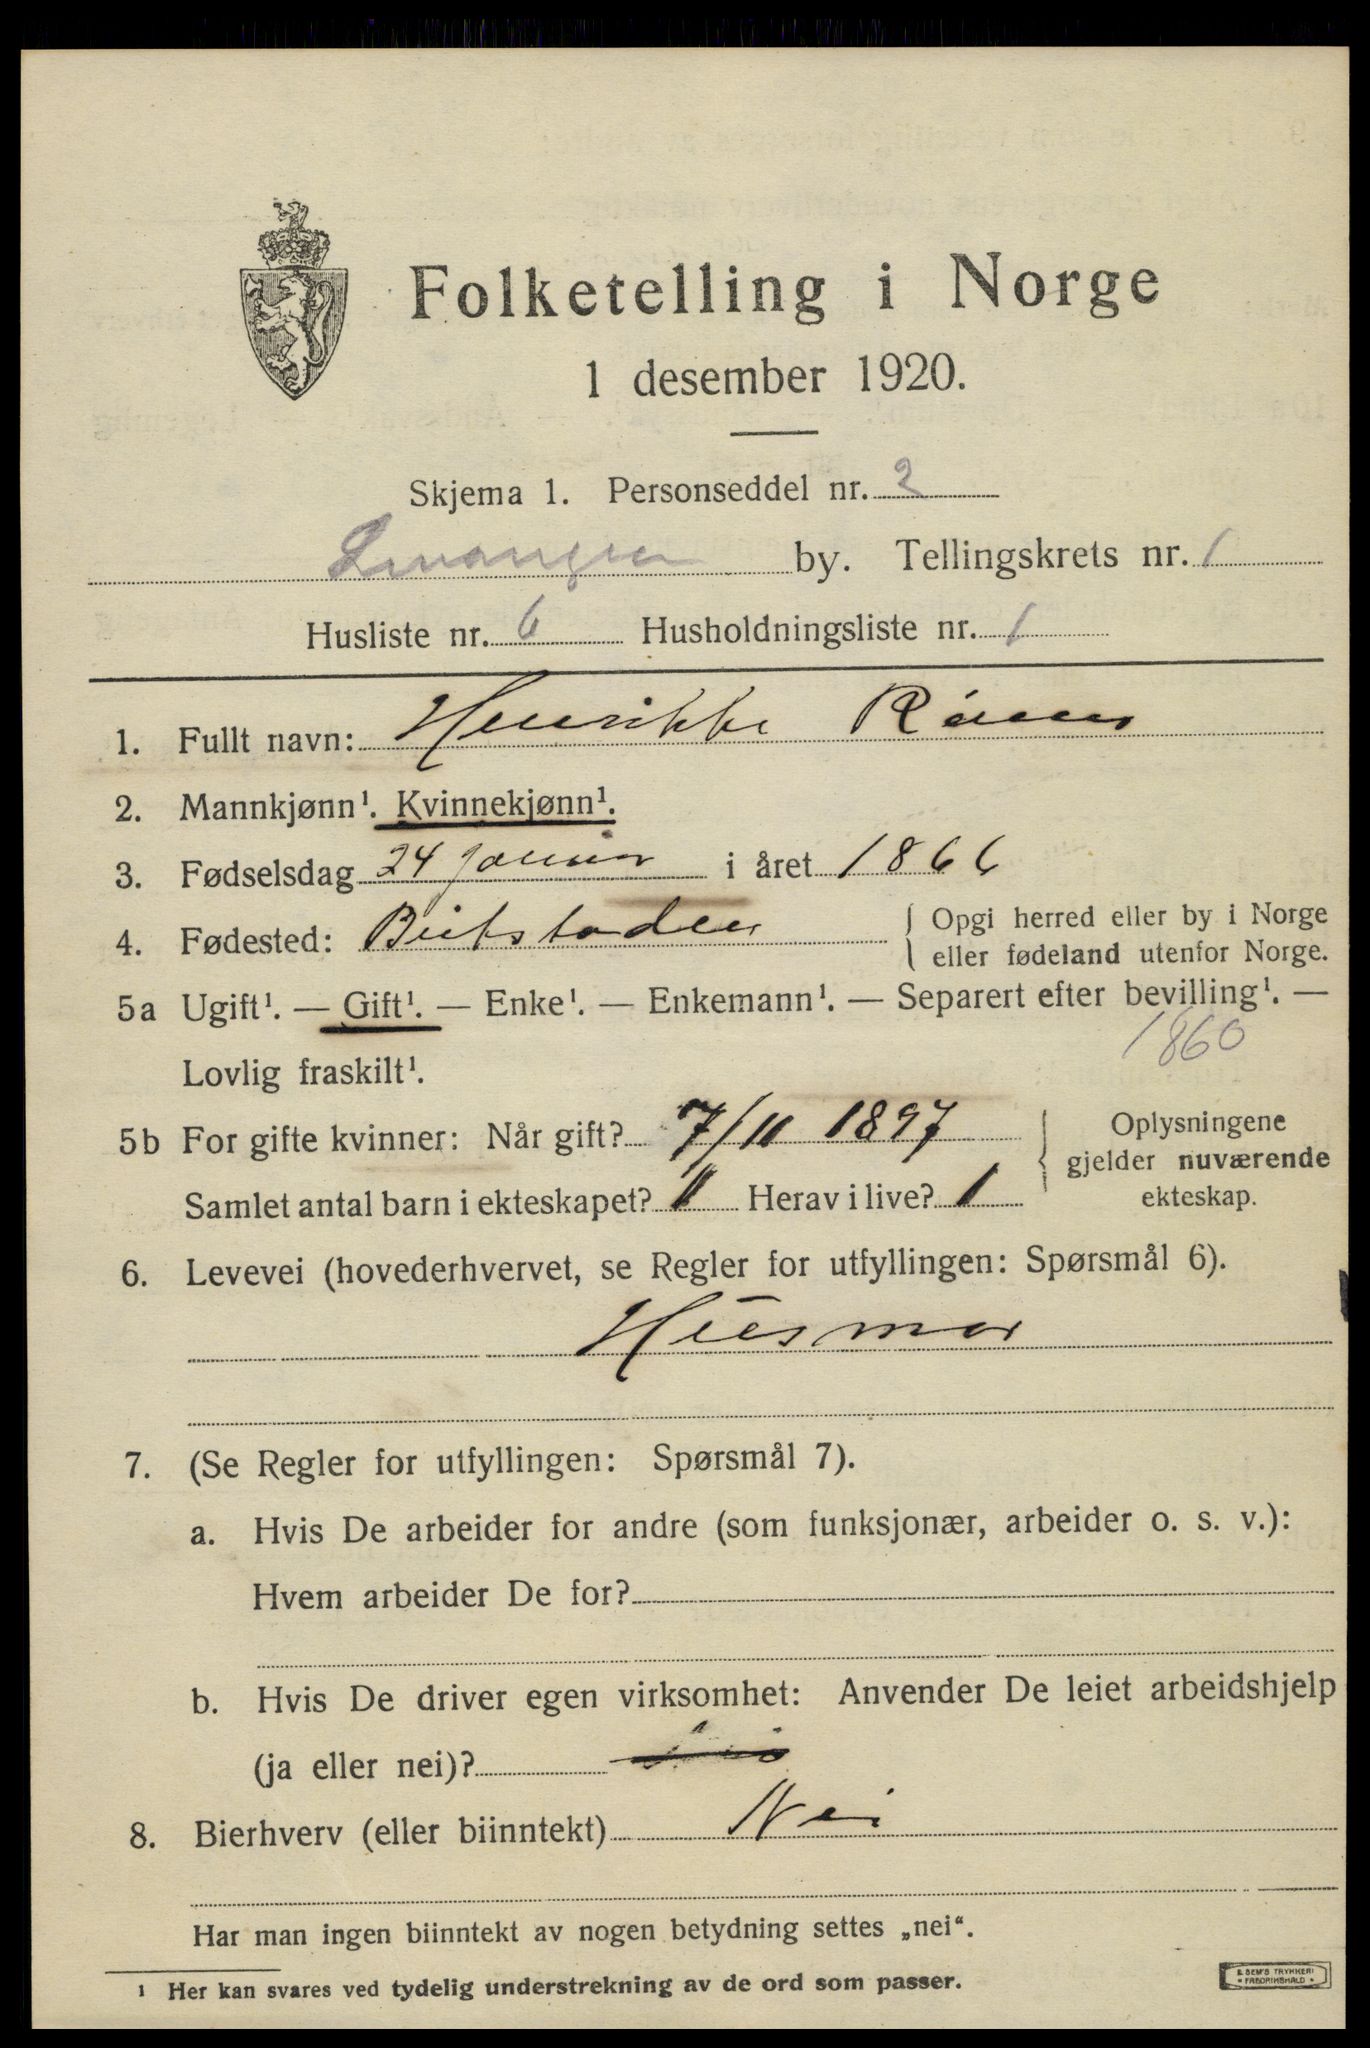 Folketelling i Norge
1 desember 1920.
Skjema 1. Personseddel nr. 2
Levanger by. Tellingskrets nr. 1
Husliste nr. 6 Husholdningsliste nr. 1
1. Fullt navn: Henrikke
2. Mannkjønn¹. Kvinnekjønn¹.
3. Fødselsdag 24 januar i året 1866
4. Fødested: Beitstaden { Opgi herred eller by i Norge
eller fødeland utenfor Norge.
5a Ugift¹. — Gift¹. — Enke¹. — Enkemann¹. — Separert efter bevilling¹. —
1860
Lovlig fraskilt¹.
5b For gifte kvinner: Når gift? 7/11 1897 { Oplysningene
gjelder nuværende
ekteskap.
Samlet antal barn i ekteskapet? 1 Herav i live? 1
6. Levevei (hovederhvervet, se Regler for utfyllingen: Spørsmål 6).
Husmor
7. (Se Regler for utfyllingen: Spørsmål 7).
a. Hvis De arbeider for andre (som funksjonær, arbeider o. s. v.):
Hvem arbeider De for?
b. Hvis De driver egen virksomhet: Anvender De leiet arbeidshjelp
(ja eller nei)?
8. Bierhverv (eller biinntekt) Nei
Har man ingen biinntekt av nogen betydning settes „nei“.
¹ Her kan svares ved tydelig understrekning av de ord som passer.
E. SEM'S TRYKKERI
FREDRIKSHALD